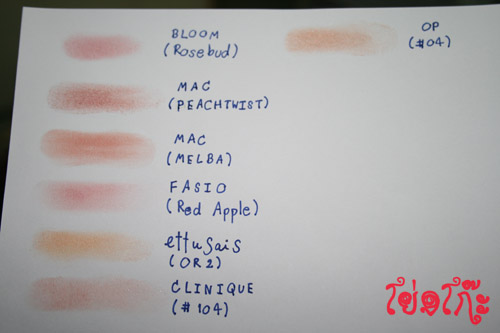 BLOOM
(Rosebud)
MAC
(PEACHTWIST)
MAC
(MELBA)
FASIO
(Red Apple)
ettusais
(OR2)
CLINIQUE
(#104)
OP
(#04)
โย่วโก๊ะ